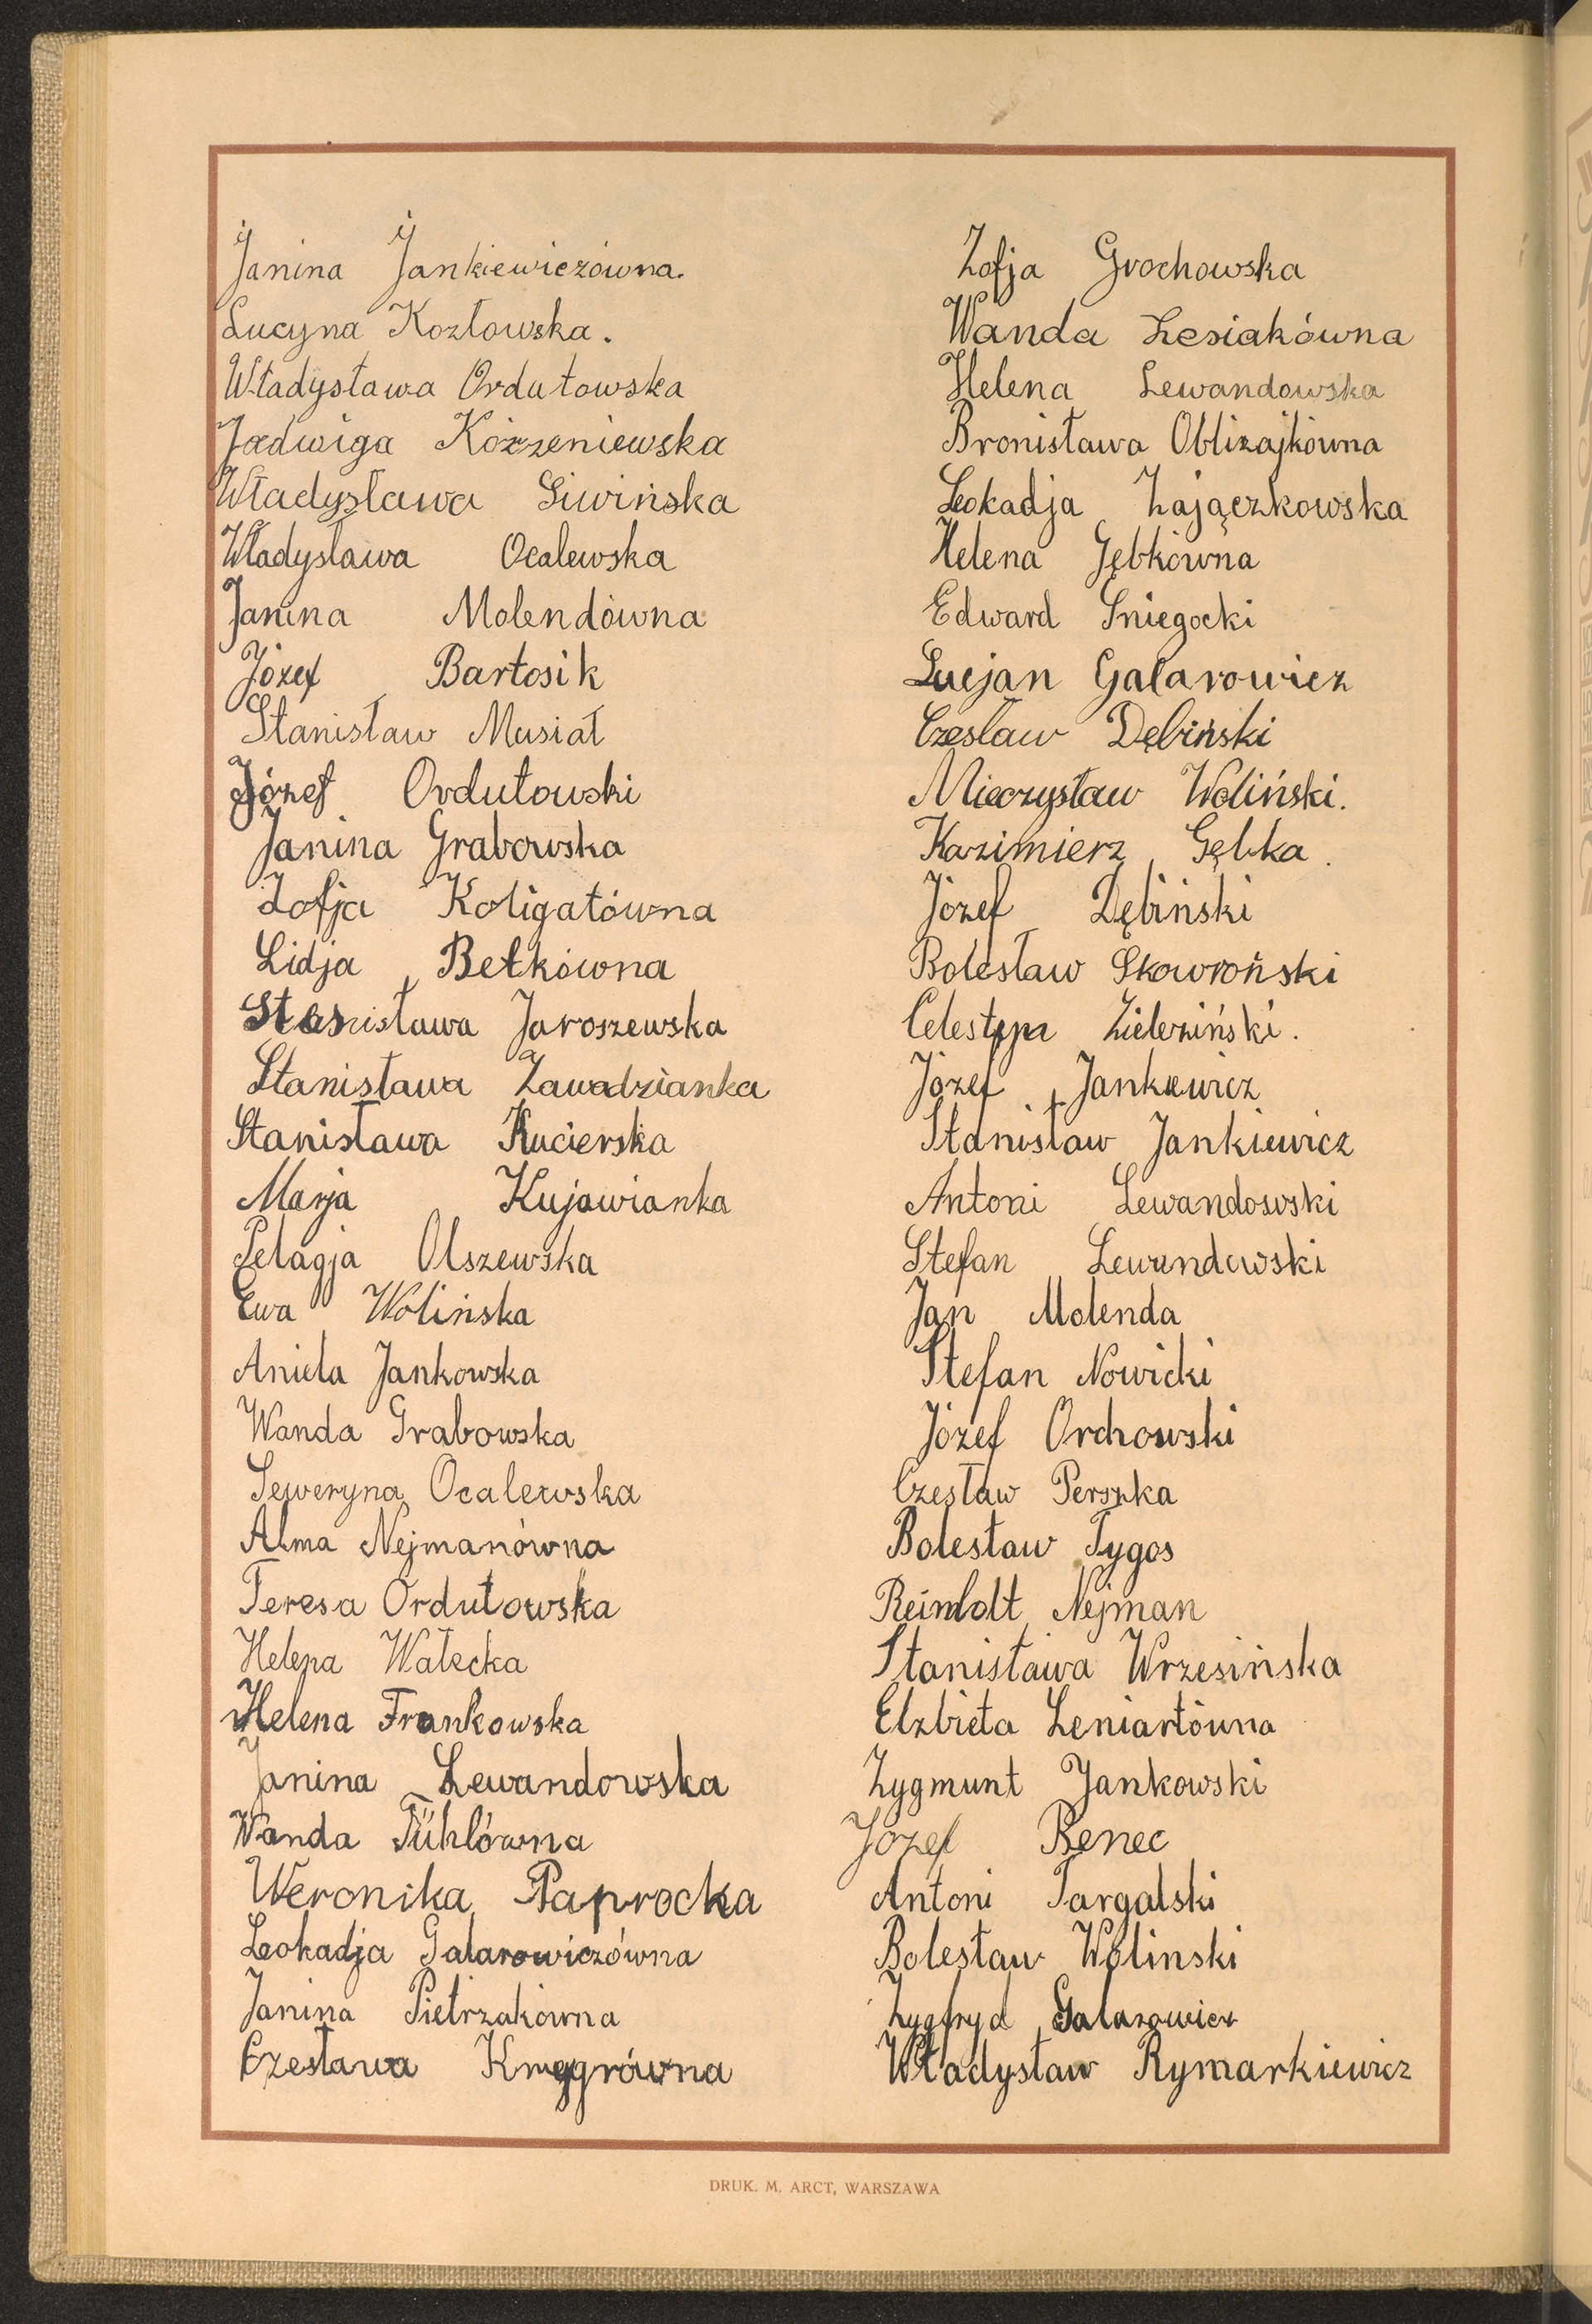 Janina Jankiewiczówna.
Lucyna Kozłowska.
Władysława Ordutowska
Jadwiga Korzeniewska
Władysława Siwińska
Władysława Ocalewska
Janina Molendówna
Józef Bartosik
Stanisław Musiał
Józef Ordutowski
Janina Grabowska
Zofja Koligatówna
Lidja Betkówna
Stanisława Jaroszewska
Stanisława Zawadzianka
Stanisława Kucierska
Marja Kujawianka
Pelagja Olszewska
Ewa Wolińska
Aniela Jankowska
Wanda Grabowska
Seweryna Ocalewska
Alma Nejmanówna
Teresa Ordutowska
Helena Wałecka
Helena Frankowska
Janina Lewandowska
Wanda Tühlówna
Weronika Paprocka
Leokadja Galarowiczówna
Janina Pietrzakówna
Czesława
Zofja Grochowska
Wanda Lesiakówna
Helena Lewandowska
Bronisława Oblizajkówna
Leokadja Zajączkowska
Helena Gębkówna
Edward Śniegocki
Lucjan Galarowicz
Czesław Dębiński
Mieczysław Woliński.
Kazimierz Gębka.
Józef Dębiński
Bolesław Skowroński
Celestyn Zieleziński.
Józef Jankiewicz
Stanisław Jankiewicz
Antoni Lewandowski
Stefan Lewandowski
Jan Molenda
Stefan Nowicki
Józef Orchowski
Czesław Perszka
Bolesław Tygos
Reinholt Nejman
Stanisława Wrzesińska
Elzbieta Leniartówna
Zygmunt Jankowski
Józef Benec
Antoni Targalski
Bolesław Wolinski
Zygfryd Galarowicz
Władysław Rymarkiewicz
DRUK. M. ARCT, WARSZAWA